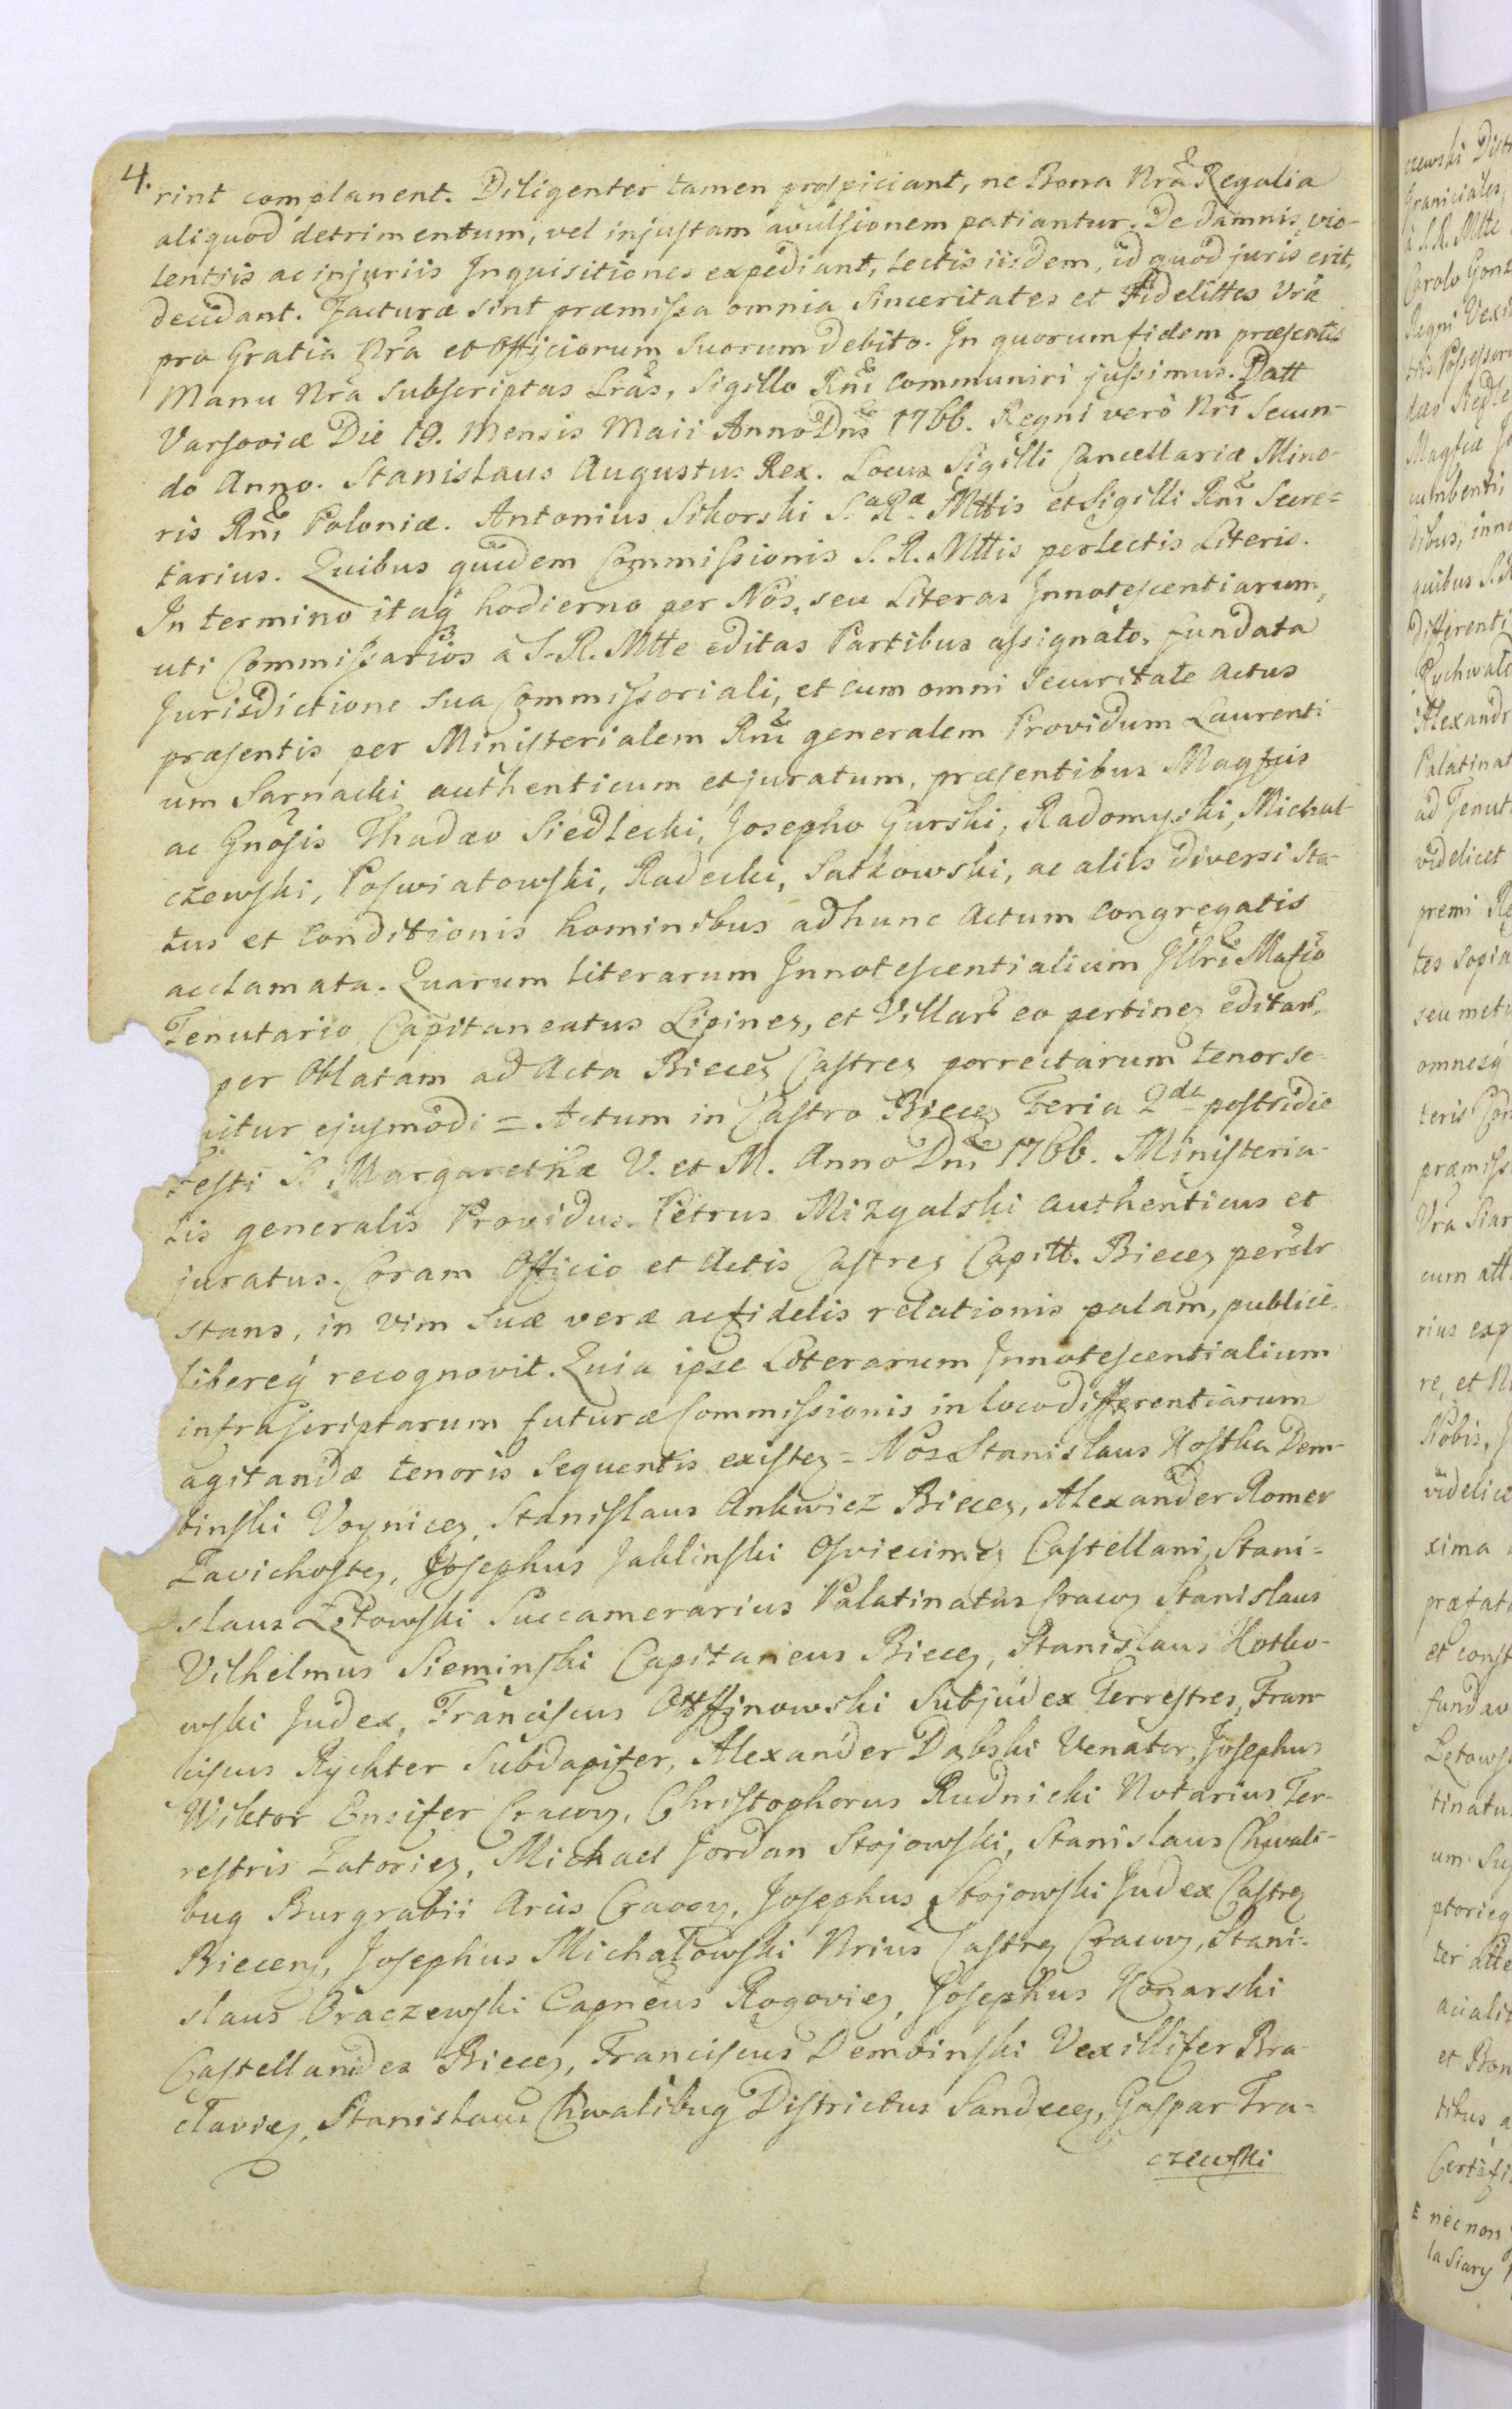 4.
rint complanent. Diligenter tamen prospiciant, ne Bona Nrã Regalia
aliquod detrimentum, vel injustam avulsionem patiantur. De damnis, vio-
lentsis ac injuriis Inquisitiones expediant, lectis iisdem, id quod juris erit,
decidant. Facturæ sint præmissa omnia Sinceritates et Fidelittes Vræ
pro Gratia Nra et Officiorum Suorum debito. In quorum fidem præsentes
Manu Nra Subscriptas Lrãs, Sigillo Rnĩ Communiri jussimus. Datt
Varsoviæ Die 19. Mensis Maii Anno Dnĩ 1766. Regni verò Nrĩ Secun-
do Anno. Stanislaus Augustus Rex. Locus Sigilli Cancellariæ Mino-
ris Rnĩ Poloniæ. Antonius Sikorski S.æ R.æ Mttis et Sigilli Rnĩ Secre=
tarius. Quibus quidem Commissionis S. R. Mttis perlectis Literis.
In termino itaq́ hodierno per Nos, seu Literas Innotescentiarum,
uti Commissarios à S. R. Mtte editas Partibus assignato, fundata
Jurisdictione sua Commissoriali, et cum omni Securitate Actus
præsentis per Ministerialem Rnĩ generalem Providum Laurenti
um Sarnacki authenticum et juratum, præsentibus Magfcis
ac Gnõsis Thadæo Siedlecki, Josepho Gurski, Radomyski, Michal-
czewski, Poswiatowski, Radecki, Satkowski, ac aliis diversi Sta-
tus et Conditionis hominibus ad hunc Actum Congregatis
acclamata. Quarum literarum Innotescentialium Illri Mafco
Tenutario Capitaneatus Lipinez, et Villarũ eo pertinez editarũ,
per Oblatam ad Acta Biecez Castrez porrectarum tenor se-
uitur ejusmodi = Actum in Castro Biecez Feria 2da postridie
Festi S. Margarethæ V. et M. Anno Dnĩ 1766. Ministeria-
lis generalis Providus Petrus Mizgalski authenticus et
juratus. Coram Officio et Actis Castrez Capitt. Biecez persolr
stans, in vim Suæ veræ ac fidelis relationis palam, publice,
libereq́ recognovit. Quia ipse Literarum Innotescentialium
infrascriptarum futuræ Commissionis in loco differentiarum
agitandæ tenoris Sequentis existez = Nos Stanislaus Hostka Dem-
binski Voynicez, Stanislaus Ankwicz Biecez, Alexander Romer
Zavichostez, Josephus Jablinski Osviecimez Castellani, Stani=
slaus Łętowski Succamerarius Palatinatus Cracoz Stanislaus
Vilhelmus Sieminski Capitaneus Biecez, Stanislaus Kotko-
wski Judex, Franciscus Otffinowski Subjudex Terrestres, Fran-
ciscus Rychter Subdapifer, Alexander Dąbski Venator, Josephus
Wiktor Ensifer Cracoz, Christophorus Rudnicki Notarius Ter-
restris Zatoriez, Michael Jordan Stojowski, Stanislaus Chwali-
bug Burgrabii Arcis Cracoz, Josephus Stojowski Judex Castrez
Biecenz, Josephus Michałowski Nrius Castrez Cracoz, Stani-
slaus Oraczewski Capneus Rogoviez, Josephus Konarski
Castellanides Biecez, Franciscus Dembinski Vexillifer Bra-
claviez, Stanislaus Chwalibug Districtus Sandecez, Gaspar Tra-
czewski